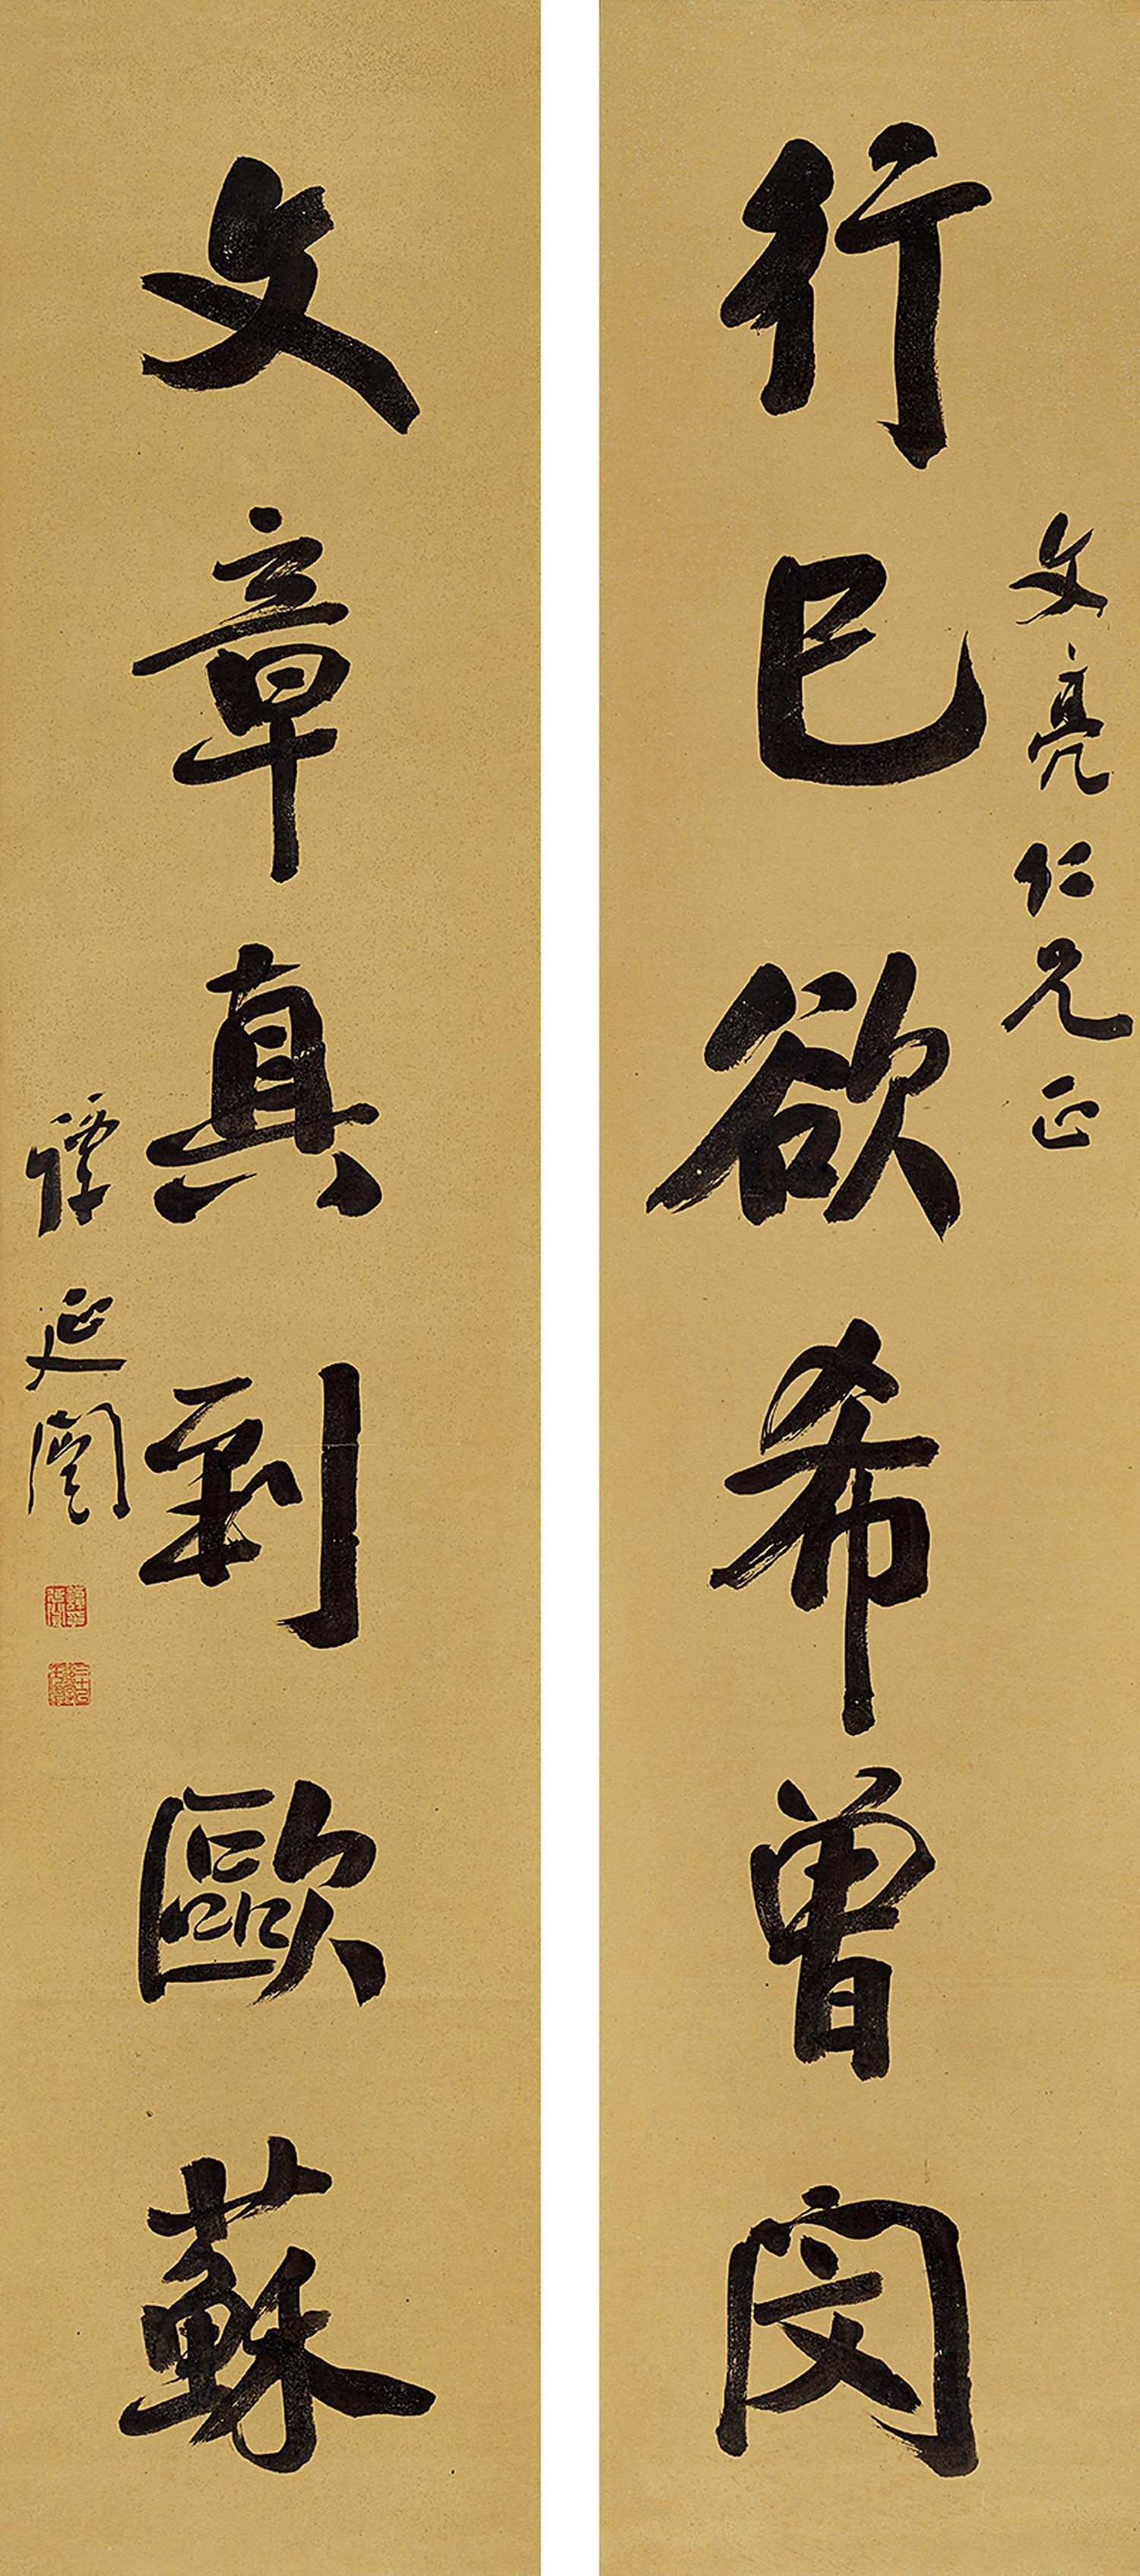 行己欲希曾閔
文亮仁兄正
文章真到歐蘇
譚延闓